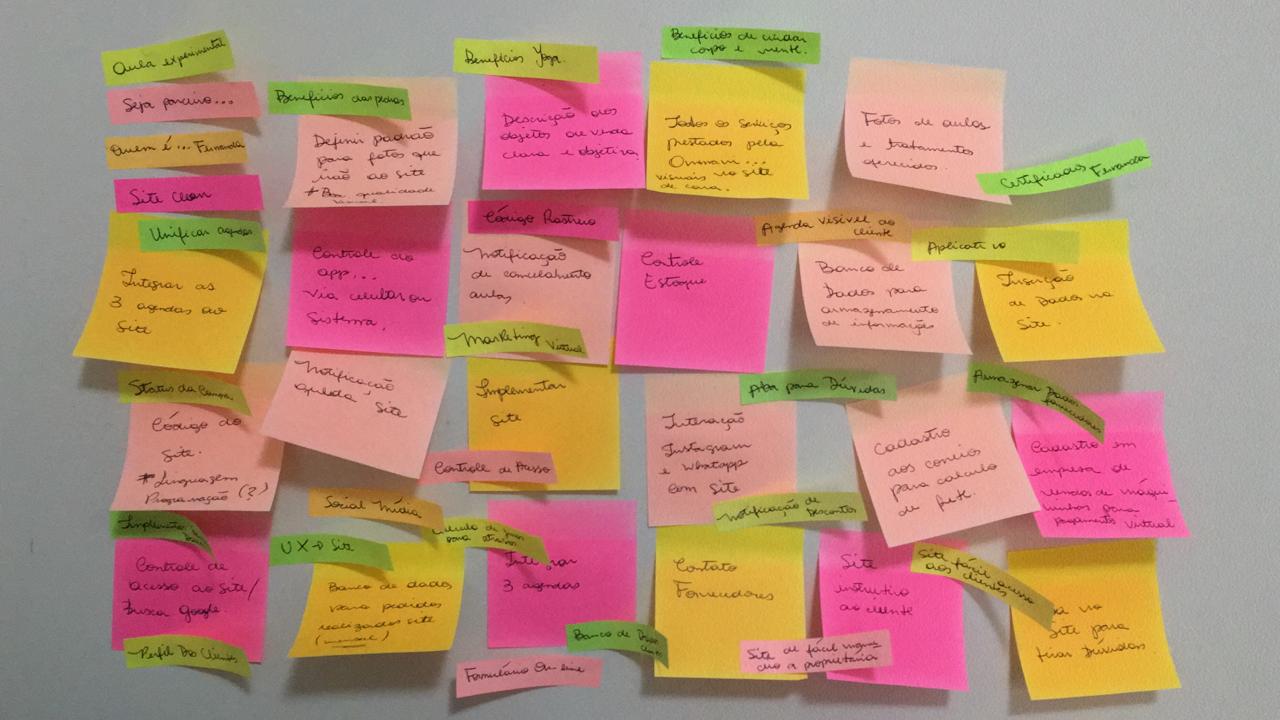 Aula experimental
Seja parceiro...
Quem é... Fernanda
Site clean
Benefícios das pedras
Definir padrão
para fotos que
irão ao site
* Boa qualidade
Benefícios Yoga.
Descrição dos
objetos ou venda
clara e objetiva
Benefícios de cuidar
corpo e mente.
Todos os serviços
prestados pela
visuais no site
de cara.
Fotos de aulas
e tratamentos
oferecidos.
Certificados Fernanda
Unificar agendas
Integrar as
3 agendas ao
Site
Controle do
app...
via celular ou
Sistema.
Código Rastreio
Notificação
de cancelamento
aulas
Marketing Virtual
Controle
Estoque
Agenda visível ao
cliente
Banco de
Dados para
armazenamento
de informações
Aplicativo
Inserção
de Dados no
Site.
Status da Compra
Código do
Site.
* Linguagem
Programação (?)
Notificação
Site
Implementar
Site
Controle de Acesso
Interação
Instagram
e Whatsapp
com Site
Aba para Dúvidas
Notificação de
Descontos
Cadastro
aos correios
para calculo
de frete.
Armazenar Dados
fornecedores
Cadastro em
empresa de
vendas de máqui-
ninhas para
pagamento virtual
Controle de
acesso ao Site/
Busca Google.
Perfil Dos Clientes
Social Mídia
UX → Site
Banco de dados
para pedidos
realizados site
(mensal)
para
3 agendas
Banco de
Formulário On-line
Contato
Fornecedores
Site
instrutivo
ao cliente
Site de fácil
a proprietária
Site fácil acesso
aos clientes
no
Site para
tirar Dúvidas.